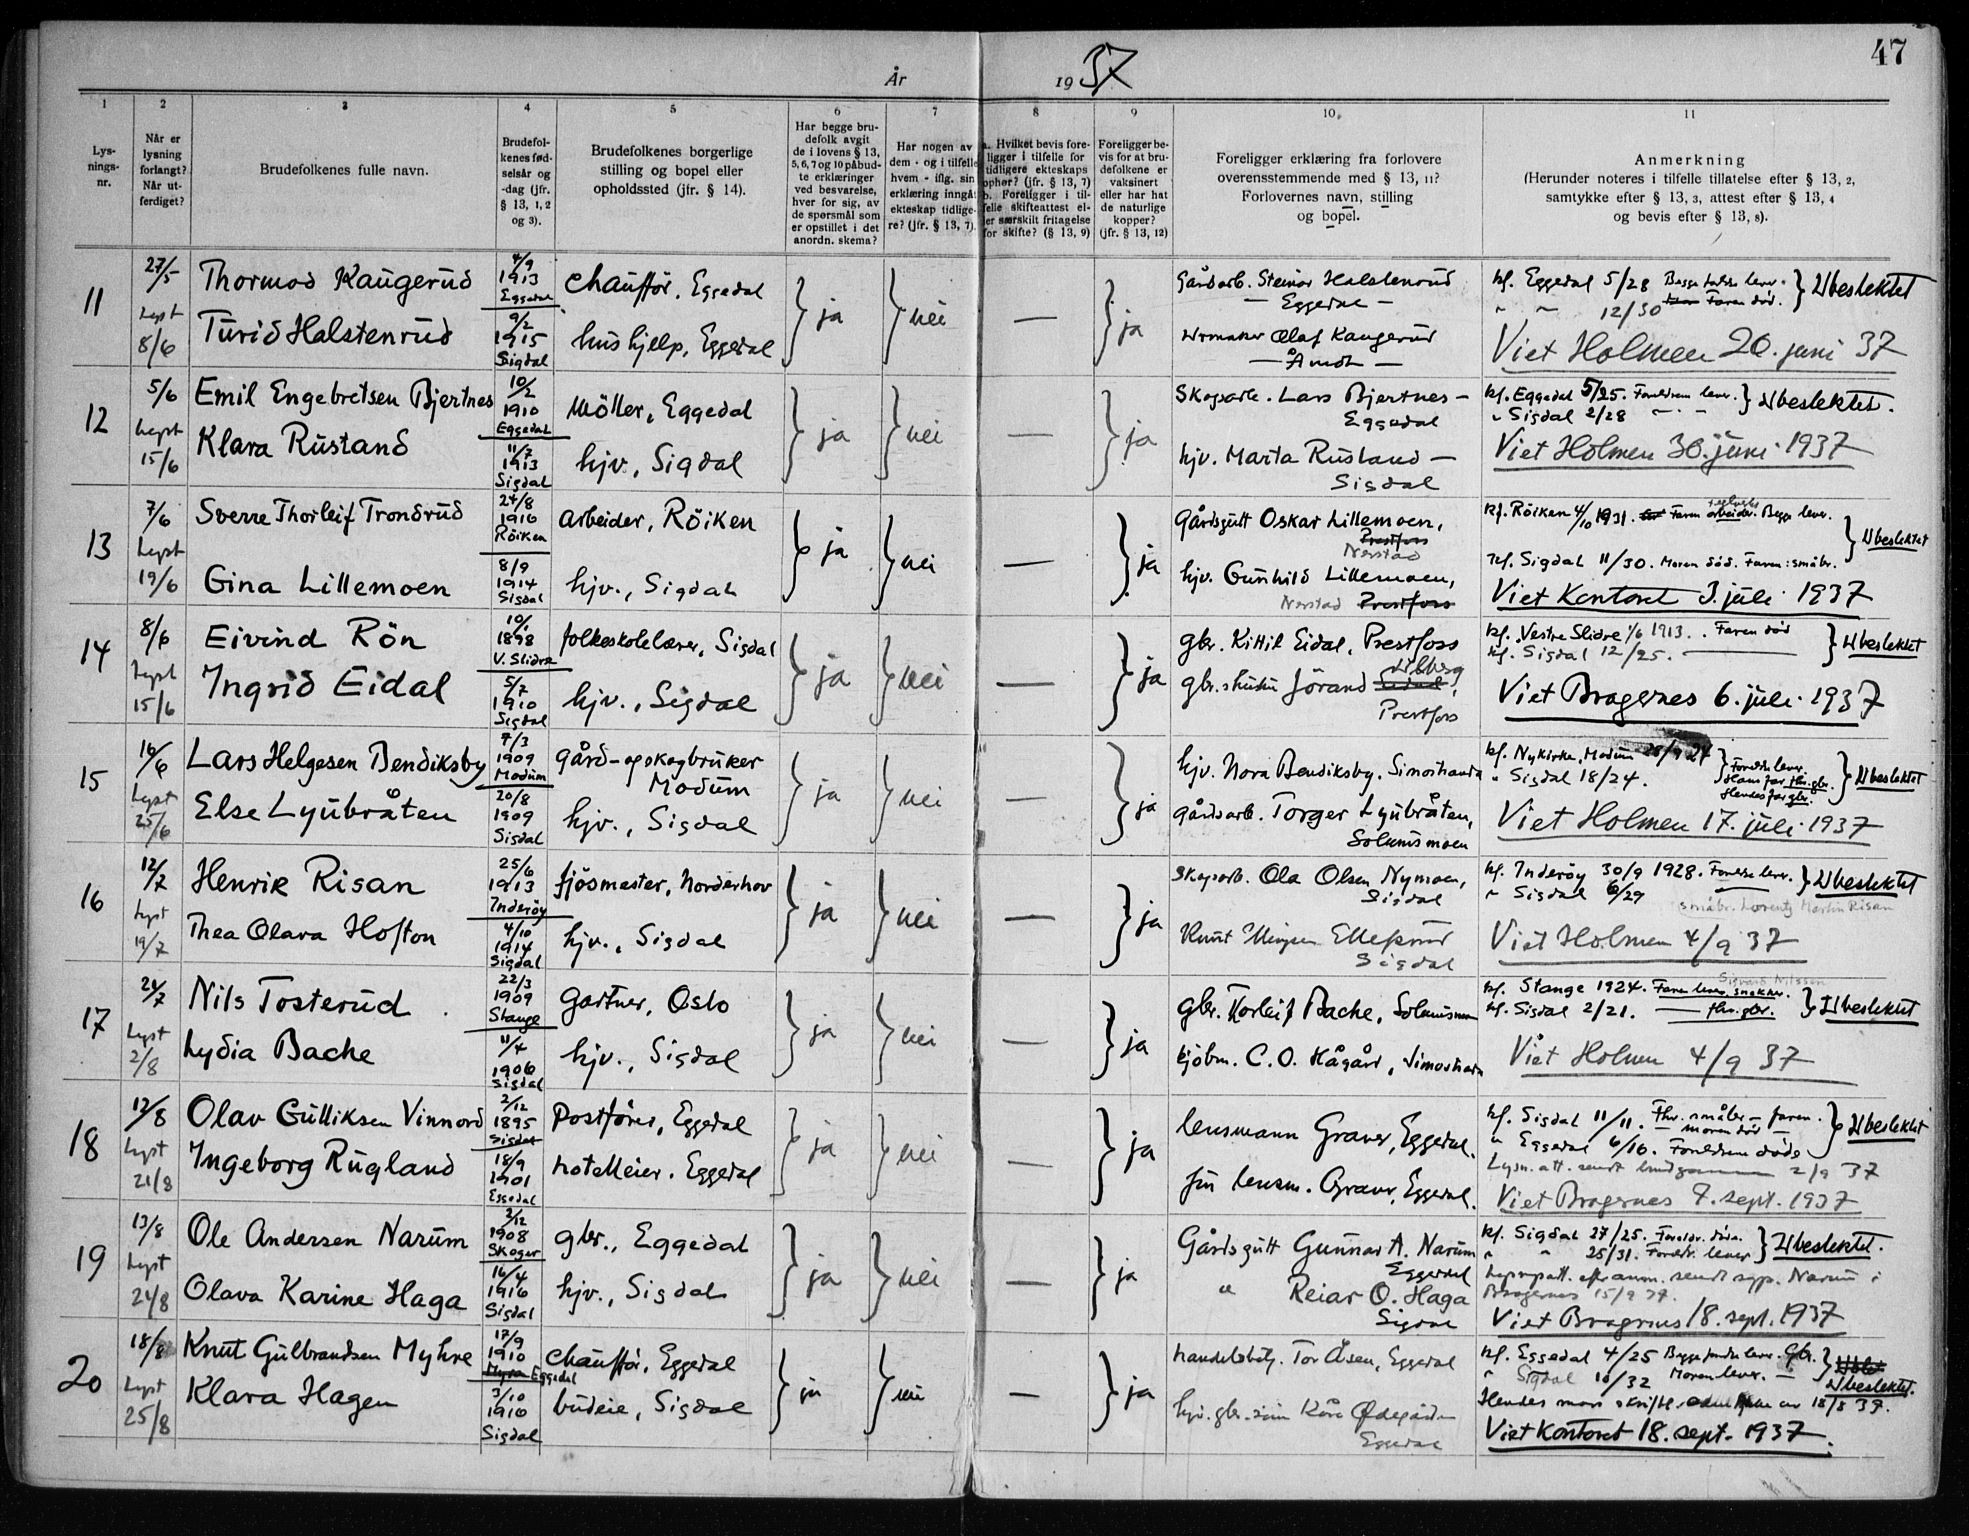 47
År 1937
1 2 3 4 5 6 7 8 9 10. 11
Lys-
nings-
nr.
Når er
lysning
forlangt?
Når ut-
ferdiget?
Brudefolkenes fulle navn.
Brudefol-
kenes fød-
selsår og
-dag (jfr.
§ 13, 1, 2
og 3).
Brudefolkenes borgerlige
stilling og bopel eller
opholdssted (jfr. § 14).
Har begge bru-
defolk avgit
de i lovens § 13,
5, 6, 7 og 10 påbud-
te erklæringer
ved besvarelse,
hver for sig, av
de spørsmål som
er opstillet i det
anordn. skema?
Har nogen av
dem - og i tilfelle
hvem - iflg. sin
erklæring inngåt
ekteskap tidlige-
re? (jfr. § 13, 7).
a. Hvilket bevis fore-
ligger i tilfelle for
tidligere ekteskaps
ophør? (jfr. § 13, 7)
b. Foreligger i til-
felle skifteattest el-
ler særskilt fritagelse
for skifte? (§ 13, 9)
Foreligger be-
vis for at bru-
defolkene er
vaksinert
eller har hat
de naturlige
kopper?
(jfr. § 13, 12)
Foreligger erklæring fra forlovere
overensstemmende med § 13, 11?
Forlovernes navn, stilling
og bopel.
Anmerkning
(Herunder noteres i tilfelle tillatelse efter § 13, 2,
samtykke efter § 13, 3, attest efter § 13, 4
og bevis efter § 13, 8).
11
27/5
Lyst
8/6
Thormod Kaugerud
Turid Halstenrud
4/9
1913
Eggedal
9/2
1915
Sigdal
Chauffør, Eggedal
hushjelp, Eggedal
ja nei — ja
Gårdarb. Steinar Halstenrud
— Eggedal —
Urmaker Olaf Kaugerud
— Åmot —
kf. Eggedal 5/28 Begge foreldre lever.
" " 12/30 Faren død. Ubeslektet
Viet Holmen 20. juni 37
12
5/6
Lyst
15/6
Emil Engebretsen Bjertnes
Klara Rustand
10/2
1910
Eggedal
11/7
1913
Sigdal
Möller, Eggedal
hjv., Sigdal
ja nei — ja
Skogsarb. Lars Bjertnes —
Eggedal
hjv. Marta Rustand —
Sigdal
kf. Eggedal 5/25. Foreldrene lever. Ubeslektet.
" Sigdal 2/28 " "
Viet Holmen 30. juni 1937
13
7/6
Lyst
19/6
Sverre Thorleif Trondrud
Gina Lillemoen
24/8
1916
Röiken
8/9
1914
Sigdal
Arbeider, Röiken
hjv., Sigdal
ja nei — ja
Gårdsgutt Oskar Lillemoen,
Prestfoss
Nerstad
hjv. Gunhild Lillemoen,
Nerstad Prestfoss
kf. Röiken 4/10 1931. Faren arbeider. Begge lever.
Kf. Sigdal 11/30. Moren död. Faren: småbr. Ubeslektet
Viet Kontoret 3. juli 1937
14
8/6
Lyst
15/6
Eivind Rön
Ingrid Eidal
1898
V. Slidre
5/7
1910
Sigdal
folkeskolelærer, Sigdal
hjv., Sigdal
ja nei — ja
gbr. Kittil Eidal, Prestfoss
gbr. hustru Jörand
Prestfoss
kf. Vestre Slidre 1/6 1913. Faren död
kf. Sigdal 12/25. Ubeslektet
Viet Bragernes 6. juli 1937
15
16/6
Lyst
25/6
Lars Helgesen Bendiksby
Else Lyubråten
7/3
1909
Modum
20/8
1909
Sigdal
gård- og skogbruker
Modum
hjv., Sigdal
ja nei — ja
hjv. Nora Bendiksby. Simostranda
gårdsarb. Torger Lyubråten,
Solumsmoen
kf. Nykirke, Modum
" Sigdal 18/24.
Foreldre lever.
Hans far fhv. gbr.
Hendes far gbr. Ubeslektet
Viet Holmen 17. juli 1937
16
12/7
Lyst
19/7
Henrik Risan
Thea Olava Hofton
25/6
1913
Inderöy
4/10
1914
Sigdal
fjösmester, Norderhov
hjv., Sigdal
ja nei — ja
Skogsarb. Ola Olsen Nymoen,
Sigdal
Knut Ellefsrud
Sigdal
kf. Inderöy 30/9 1928. Foreldre lever. Ubeslektet
" Sigdal 6/29
småbr. Lorentz Martin Risan
Viet Holmen 4/9 37
17
24/7
Lyst
2/8
Nils Tosterud
Lydia Bache
22/3
1909
Stange
11/4
1906
Sigdal
Gartner, Oslo
hjv., Sigdal
ja nei — ja
gbr. Torleif Bache, Solumsmoen
kjöbm. C. O. Hågår, Simostranda
Sigvard Nilssen
kf. Stange 1924. Faren lever, snekker.
kf. Sigdal 2/21. — fhv. gbr. Ubeslektet
Viet Holmen 4/9 37
18
12/8
Lyst
21/8
Olav Gulliksen Vinnord
Ingeborg Rugland
2/12
1895
Sigdal
18/9
1901
Eggedal
Postförer, Eggedal
hotelleier, Eggedal
ja nei ja
lensmann Graver, Eggedal.
fru lensm. Graver, Eggedal.
kf. Sigdal 11/11. Fhv. småbr — faren.
— moren död —
" Eggedal 6/16. Foreldrene döde Ubeslektet
Lysn. att. sendt brudgommen 2/9 37
Viet Bragernes 7. sept. 1937
19
13/8
Lyst
24/8
Ole Andersen Narum
Olava Karine Haga
2/12
1908
Skoger
16/4
1916
Sigdal
gbr., Eggedal
hjv., Sigdal
ja nei — ja
Gårdsgutt Gunnar A. Narum
Eggedal
" Reiar O. Haga
Sigdal
kf. Sigdal 27/25. Foreldr. döde.
" " 25/31. Foreldr. lever Ubeslektet.
Bragernes 15/9 37.
Viet Bragernes 18. sept. 1937
20
18/8
Lyst
25/8
Knut Gulbrandsen Myhre
Klara Hagen
17/9
1910
Myra Eggedal
3/10
1910
Sigdal
Chauffør, Eggedal
budeie, Sigdal
ja nei — ja
Handelsbetj. Tor Åsen, Eggedal
Eggedal
kf. Eggedal 4/25 Begge foreldre lever. Gbr.
" Sigdal 10/32 Moren lever. —
Ubeslektet.
Viet Kontoret 18. sept. 1937.